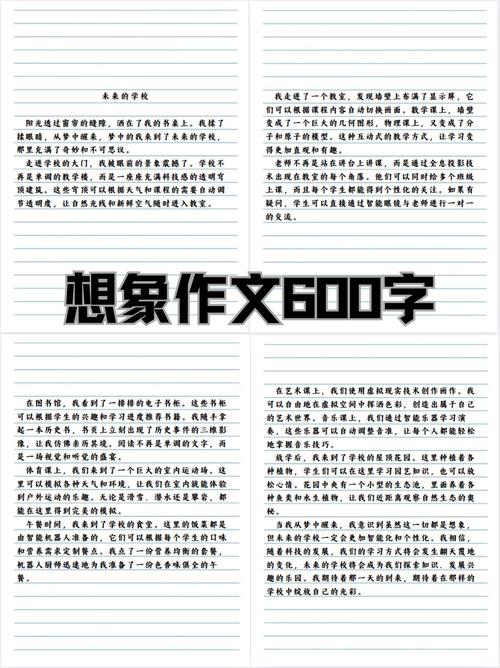 未来的学校
阳光透过窗帘的缝隙，洒在了我的书桌上。我揉了
揉眼睛，从梦中醒来，梦中的我来到了未来的学校，
那里充满了奇妙和不可思议。
走进学校的大门，我被眼前的景象震撼了。学校不
再是单调的教学楼，而是一座座充满科技感的透明穹
顶建筑。这些穹顶可以根据天气和课程的需要自动调
节透明度，让自然光线和新鲜空气随时进入教室。
我走进了一个教室，发现墙壁上布满了显示屏，它
们可以根据课程内容自动切换画面。数学课上，墙壁
变成了一个巨大的几何图形，物理课上，又变成了分
子和原子的模型。这种互动式的教学方式，让学习变
得更加直观和有趣。
老师不再是站在讲台上讲课，而是通过全息投影技
术出现在教室的每个角落。他们可以同时给多个班级
上课，而且每个学生都能得到个性化的关注。如果有
疑问，学生可以直接通过智能眼镜与老师进行一对一
的交流。
想象作文600字
在图书馆，我看到了一排排的电子书柜。这些书柜
可以根据学生的兴趣和学习进度推荐书籍。我随手拿
起一本历史书，书页上立刻出现了历史事件的三维影
像，让我仿佛亲历其境。阅读不再是单调的文字，而
是一场视觉和听觉的盛宴。
体育课上，我们来到了一个巨大的室内运动场。这
里可以模拟各种天气和环境，让我们在室内就能体验
到户外运动的乐趣。无论是滑雪、潜水还是攀岩，都
能在这里得到完美的模拟。
午餐时间，我来到了学校的食堂。这里的饭菜都是
由智能机器人准备的，它们可以根据每个学生的口味
和营养需求定制餐点。我点了一份营养均衡的套餐，
机器人厨师迅速地为我准备了一份色香味俱全的午
餐。
在艺术课上，我们使用虚拟现实技术创作画作。我
可以自由地在虚拟空间中挥洒色彩，创造出属于自己
的艺术世界。音乐课上，我们通过智能乐器学习演
奏，这些乐器可以自动调整音准，让每个人都能轻松
地掌握音乐技巧。
放学后，我来到了学校的屋顶花园。这里种植着各
种植物，学生们可以在这里学习园艺知识，也可以放
松心情。花园中央有一个小型的生态池，里面养着各
种鱼类和水生植物，让我们近距离观察自然生态的奥
秘。
当我从梦中醒来，我意识到虽然这一切都是想象，
但未来的学校一定会更加智能化和个性化。我相信，
随着科技的发展，我们的学习方式将会发生翻天覆地
的变化，未来的学校将会成为我们探索知识、发展兴
趣的乐园。我期待着那一天的到来，期待着在那样的
学校中绽放自己的光彩。